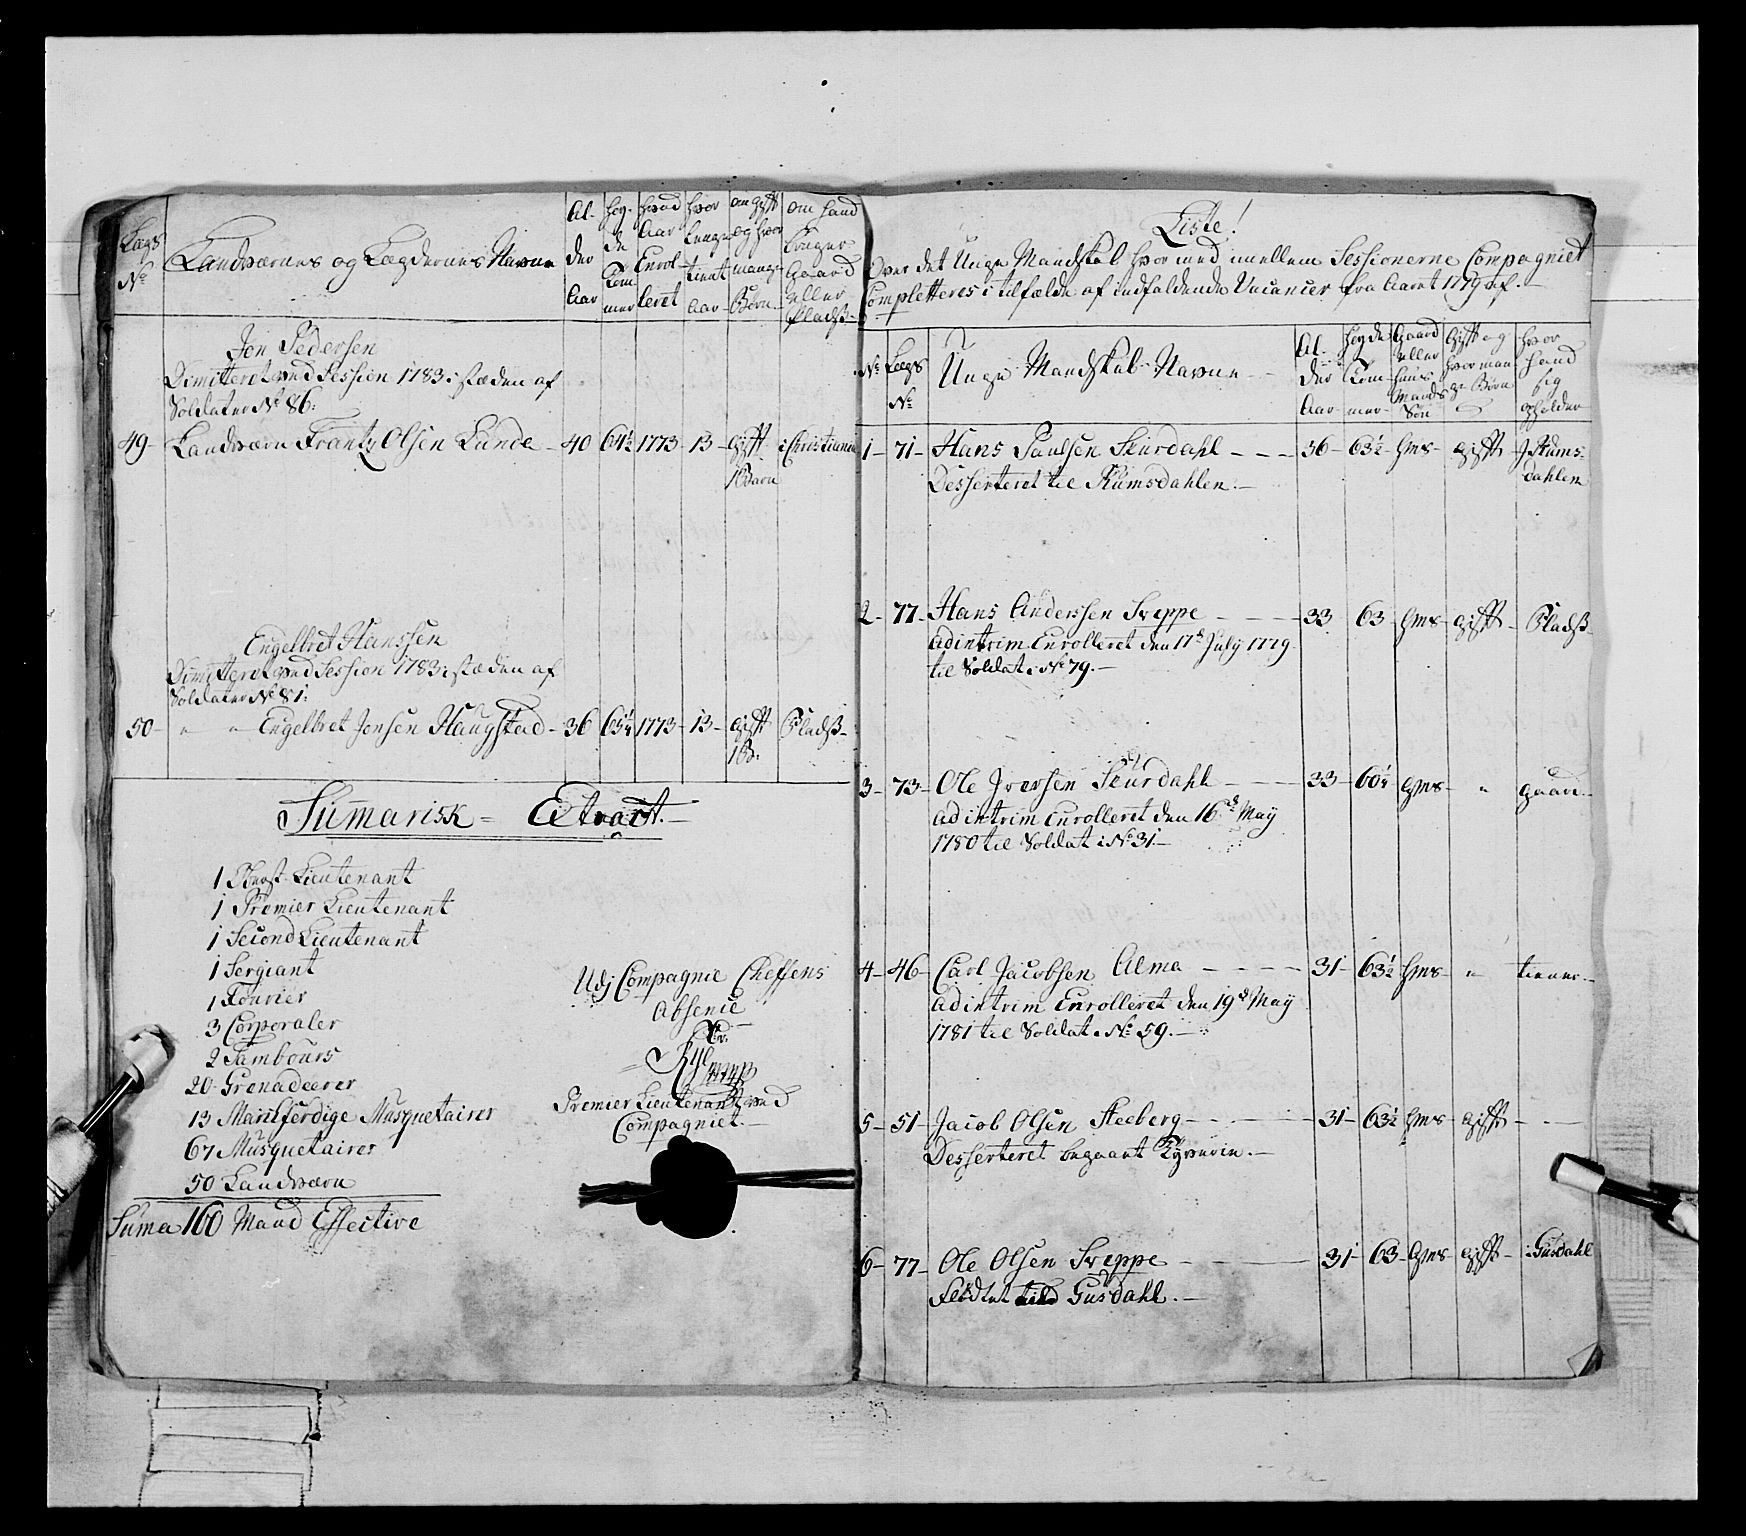 Lægs No
Landværnes og Lægdernes Navne
Al-
der
Aar
Høy-
de
Tom
mer
hvad
Aar
Enrol-
leret
hvor
lenge
tient
Aar
om gift
og hvor
mange
Børn
om hand
bruger
Gaard
eller
Pladß
Jon Pedersen
Dimitteret ved Session 1783 i stæden af
Soldater No 86:
49 Landværn Frantz Olsen Lunde 40 64½ 1773 13 gift i Christiania
1 Barn
Engelbret Hanssen
Dimitteret ved Session 1783 i stæden af
Soldater No 81:
50 " " Engelbret Jonsen Haugstad 36 65¼ 1773 13 gift Pladß
1 B:
Sumarisk Etract.
1 Obrist Lieutenant
1 Premier Lieutenant
1 Second Lieutenant
1 Sergiant
1 Fourier
3 Corporaler
2 Tambours
20 Grenadeerer
13 Marschferdige Musquetairer
67 Musquetairer
50 Landværn
Suma 160 Mand Effective
Udj Compagnie Cheffens
Absence
Premier Lieutenant ved
Compagniet.
Liste!
Over det Unge Mandskab hvor med imellem Sessionerne Compagniet
Completteres i tilfælde af indfaldende Vacancer fra Aaret 1779 af.
No
Lægs
No
Unge Mandskab Navne
Al-
der
Aar
Høyde
Tom-
mer
Gaard
eller
huus
Mands
Søn
Gift og
hvor man-
ge Børn
hvor
hand
sig
opholder
1 71 Hans Paulsen Skurdahl 36 63½ hms gift J Rums-
dahlen
Desserteret til Rumsdahlen.
2 77 Hans Anderssen Sveppe 33 63 hms gift Pladß
ad intrim Enrolleret den 17d July 1779
til Soldat i No 79.
3 73 Ole Iversen Skurdahl 33 60¼ gms " gaard
ad intrim Enrolleret den 16d May
1780 til Soldat i No 31
4 46 Carl Jacobsen Alma 31 63½ hms " tiener
ad intrim Enrolleret den 19d May
1781 til Soldat i No 59.
5 51 Jacob Olsen Steeberg 31 63½ hms gift
Desserteret begaaet Tyverie.
6 77 Ole Olsen Sveppe 31 63 hms gift i Gusdahl
Flødtet til Gusdahl.